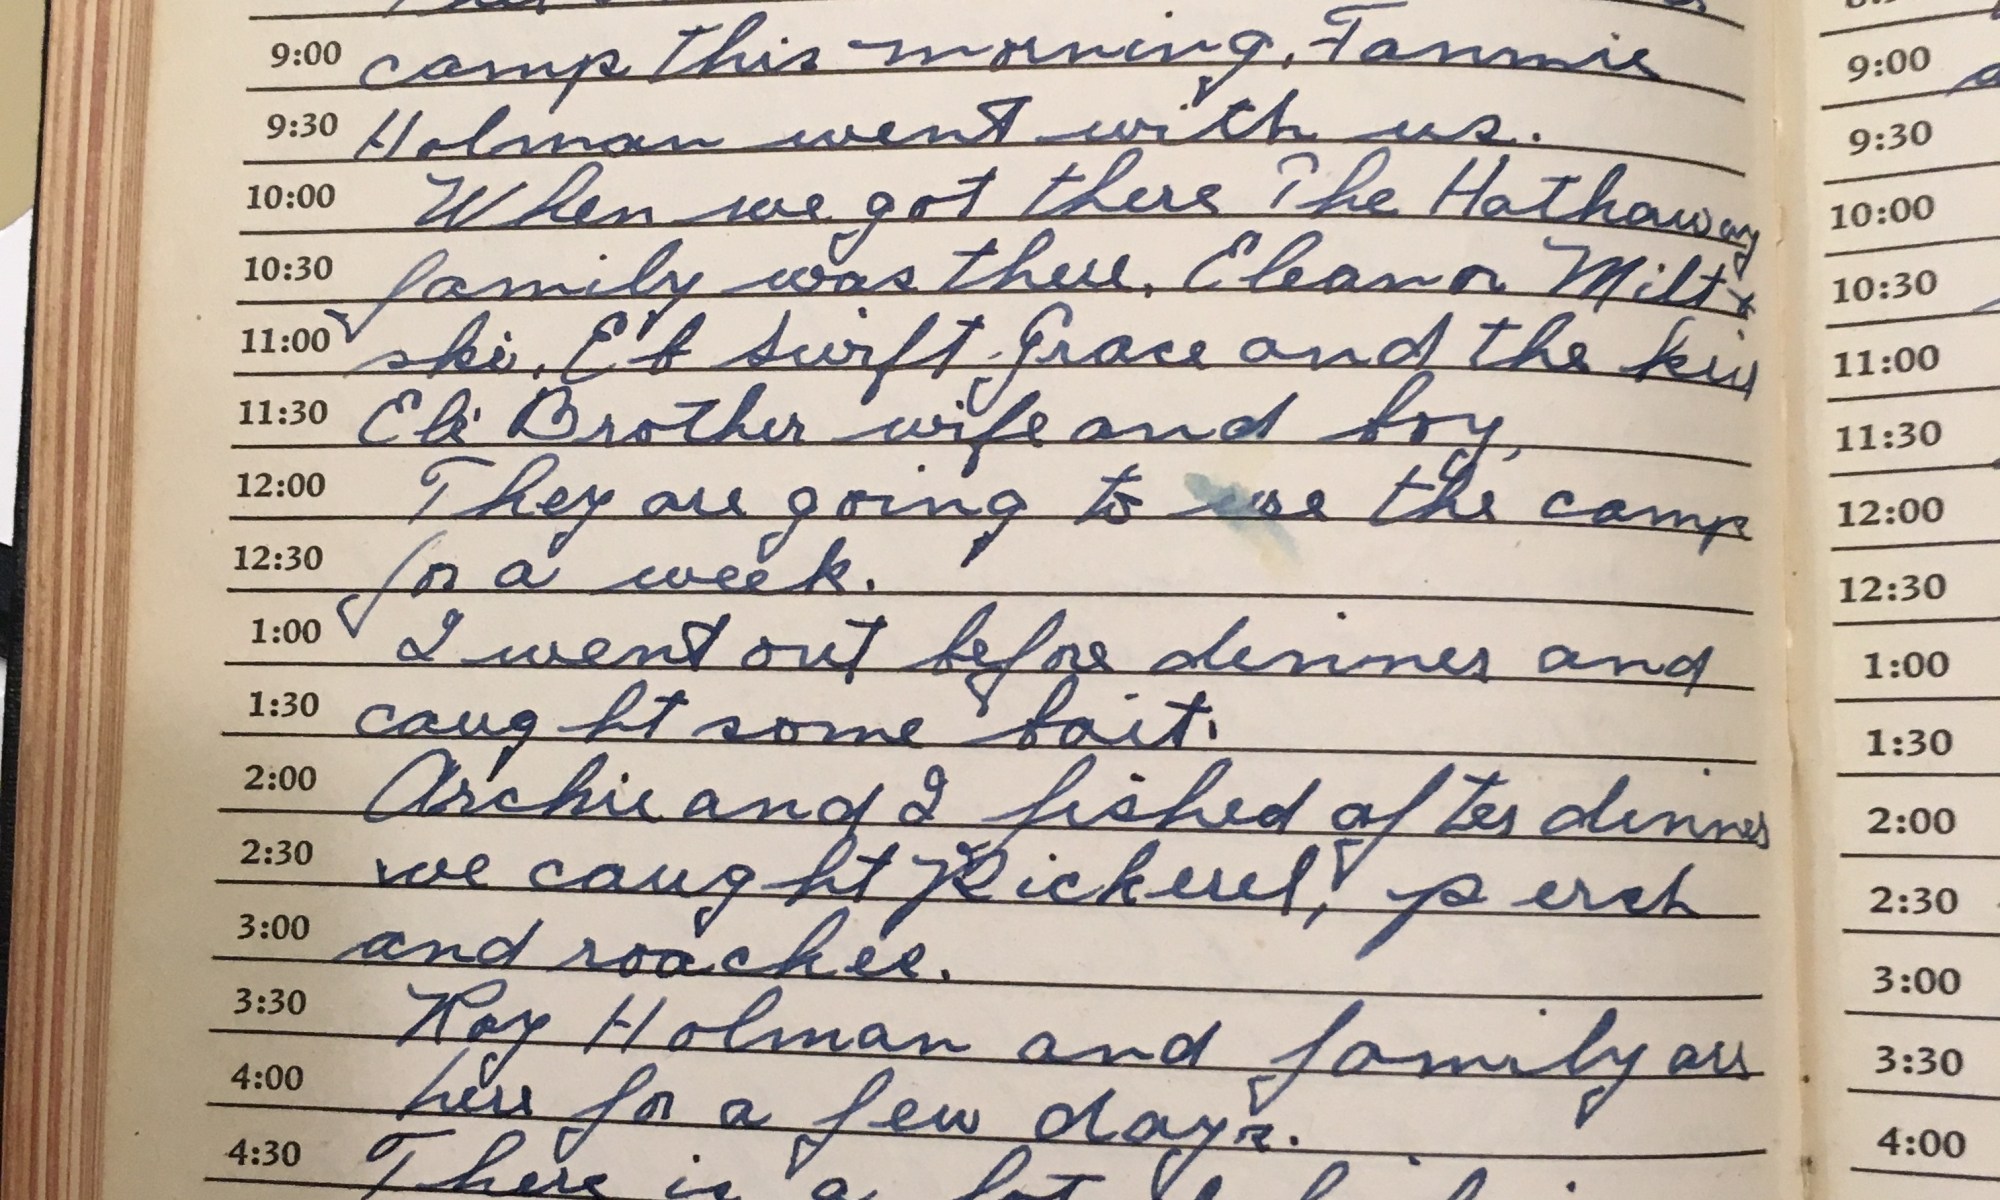 9:00 camp this morning, Fannie
9:30 Holman went with us.
10:00 When we got there The Hathaway
10:30 family was there. Eleanor Milt +
11:00 ski, Eb Swift Grace and the kids
11:30 Eb's Brother wife and boy,
12:00 They are going to use the camp
12:30 for a week.
1:00 I went out before dinner and
1:30 caught some bait.
2:00 Archie and I fished after dinner
2:30 we caught Pickerel, perch
3:00 and roaches.
3:30 Roy Holman and family are
4:00 here for a few days.
4:30 There is a lot
9:00
9:30
10:00
10:30
11:00
11:30
12:00
12:30
1:00
1:30
2:00
2:30
3:00
3:30
4:00